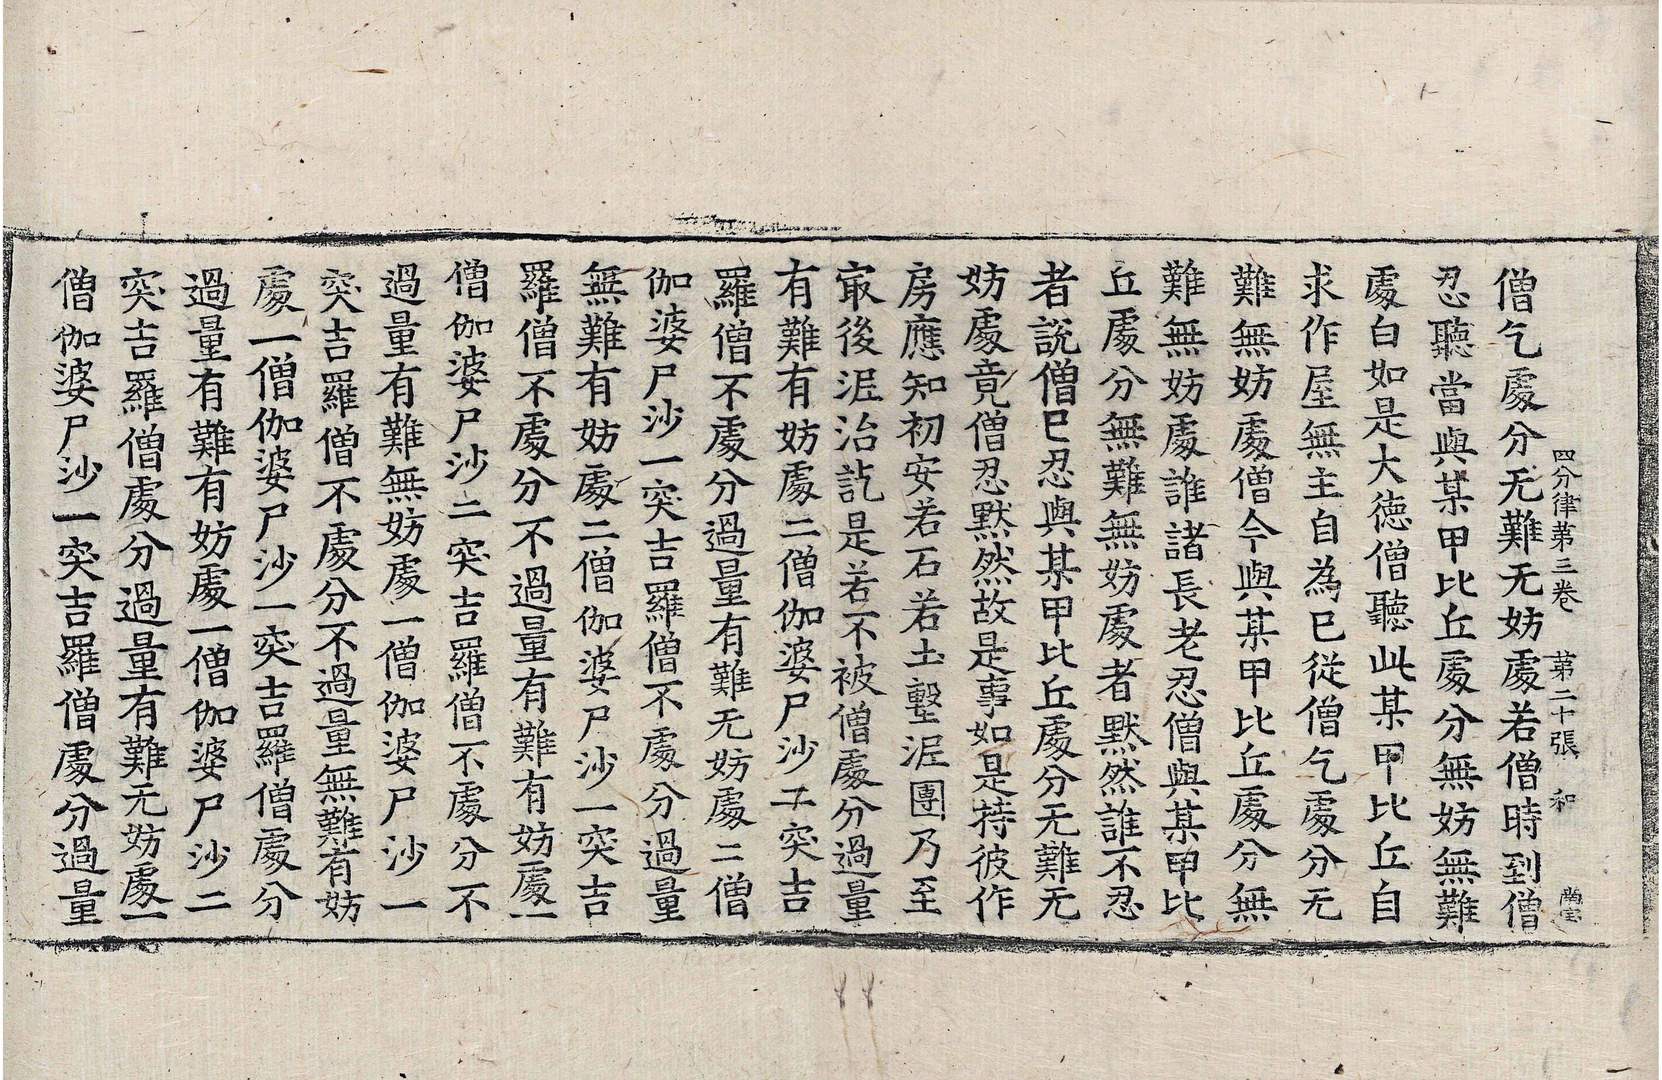 四分律第三卷 第二十張 和
僧乞處分无難无妨處若僧時到僧
忍聽當與某甲比丘處分無妨無難
處白如是大德僧聽此某甲比丘自
求作屋無主自為已從僧乞處分无
難無妨處僧今與某甲比丘處分無
難無妨處誰諸長老忍僧與某甲比
丘處分無難無妨處者默然誰不忍
者說僧已忍與某甲比丘處分无難无
妨處竟僧忍默然故是事如是持彼作
房應知初安若石若土墼泥團乃至
㝡後泥治訖是若不被僧處分過量
有難有妨處二僧伽婆尸沙二突吉
羅僧不處分過量有難无妨處二僧
伽婆尸沙一突吉羅僧不處分過量
無難有妨處二僧伽婆尸沙一突吉
羅僧不處分不過量有難有妨處一
僧伽婆尸沙二突吉羅僧不處分不
過量有難無妨處一僧伽婆尸沙一
突吉羅僧不處分不過量無難有妨
處一僧伽婆尸沙一突吉羅僧處分
過量有難有妨處一僧伽婆尸沙二
突吉羅僧處分過量有難无妨處一
僧伽婆尸沙一突吉羅僧處分過量